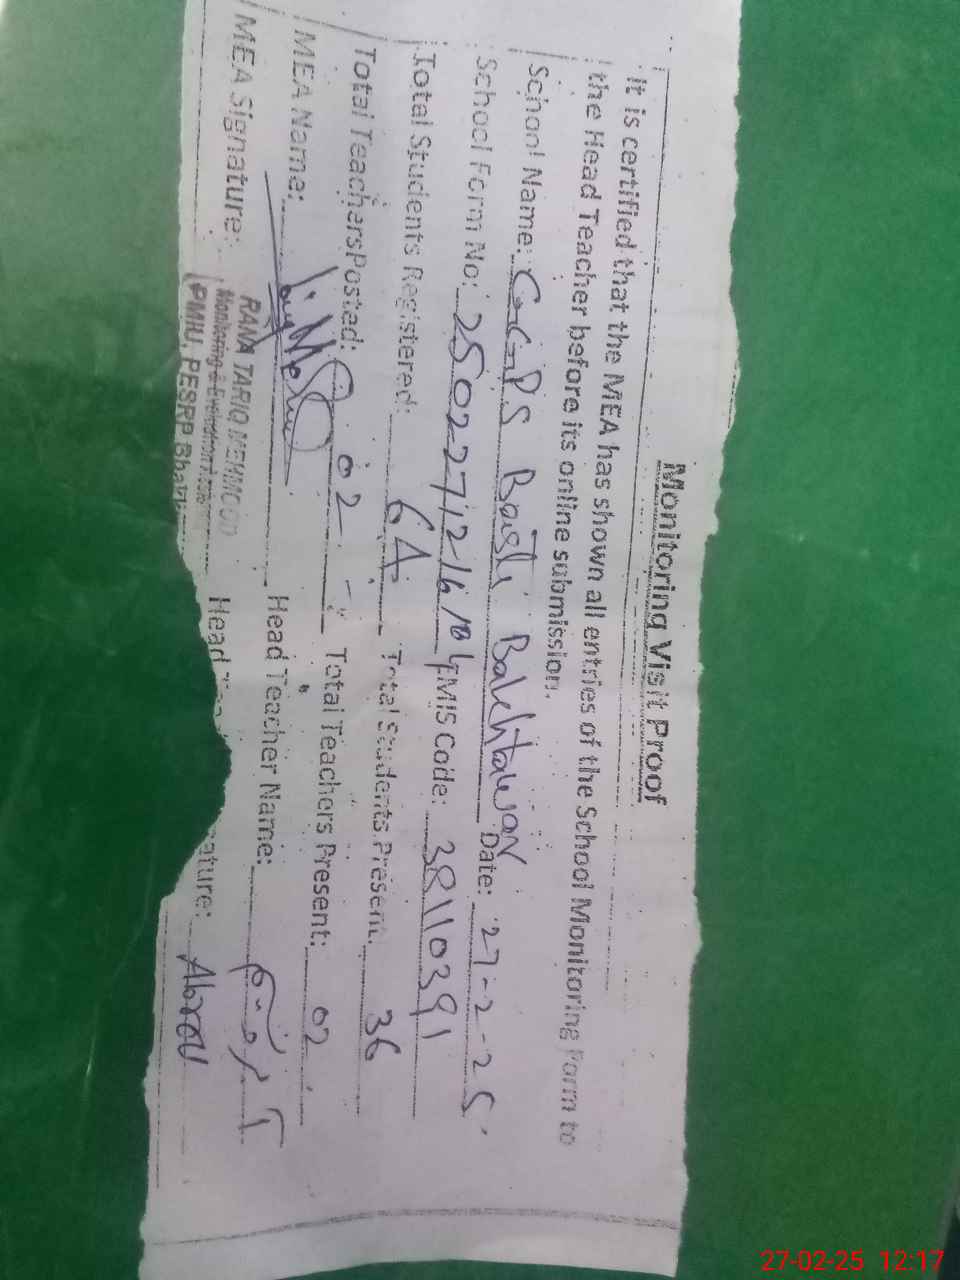 Monitoring Visit Proof
It is certified that the MEA has shown all entries of the School Monitoring Form to
the Head Teacher before its online submission.
School Name: G.G.P.S Baisti Bakhtawar Date: 27-2-25
School Form No: EMIS Code: 38110391
Total Students Registered: Total Students Present: 36
Total Teachers Posted: 02 Total Teachers Present: 02
MEA Name: Head Teacher Name:
MEA Signature: Head ature:
RANA TARIQ MEHMOOD
Monitoring & Evaluation
PMIU, PESRP
27-02-25 12:17